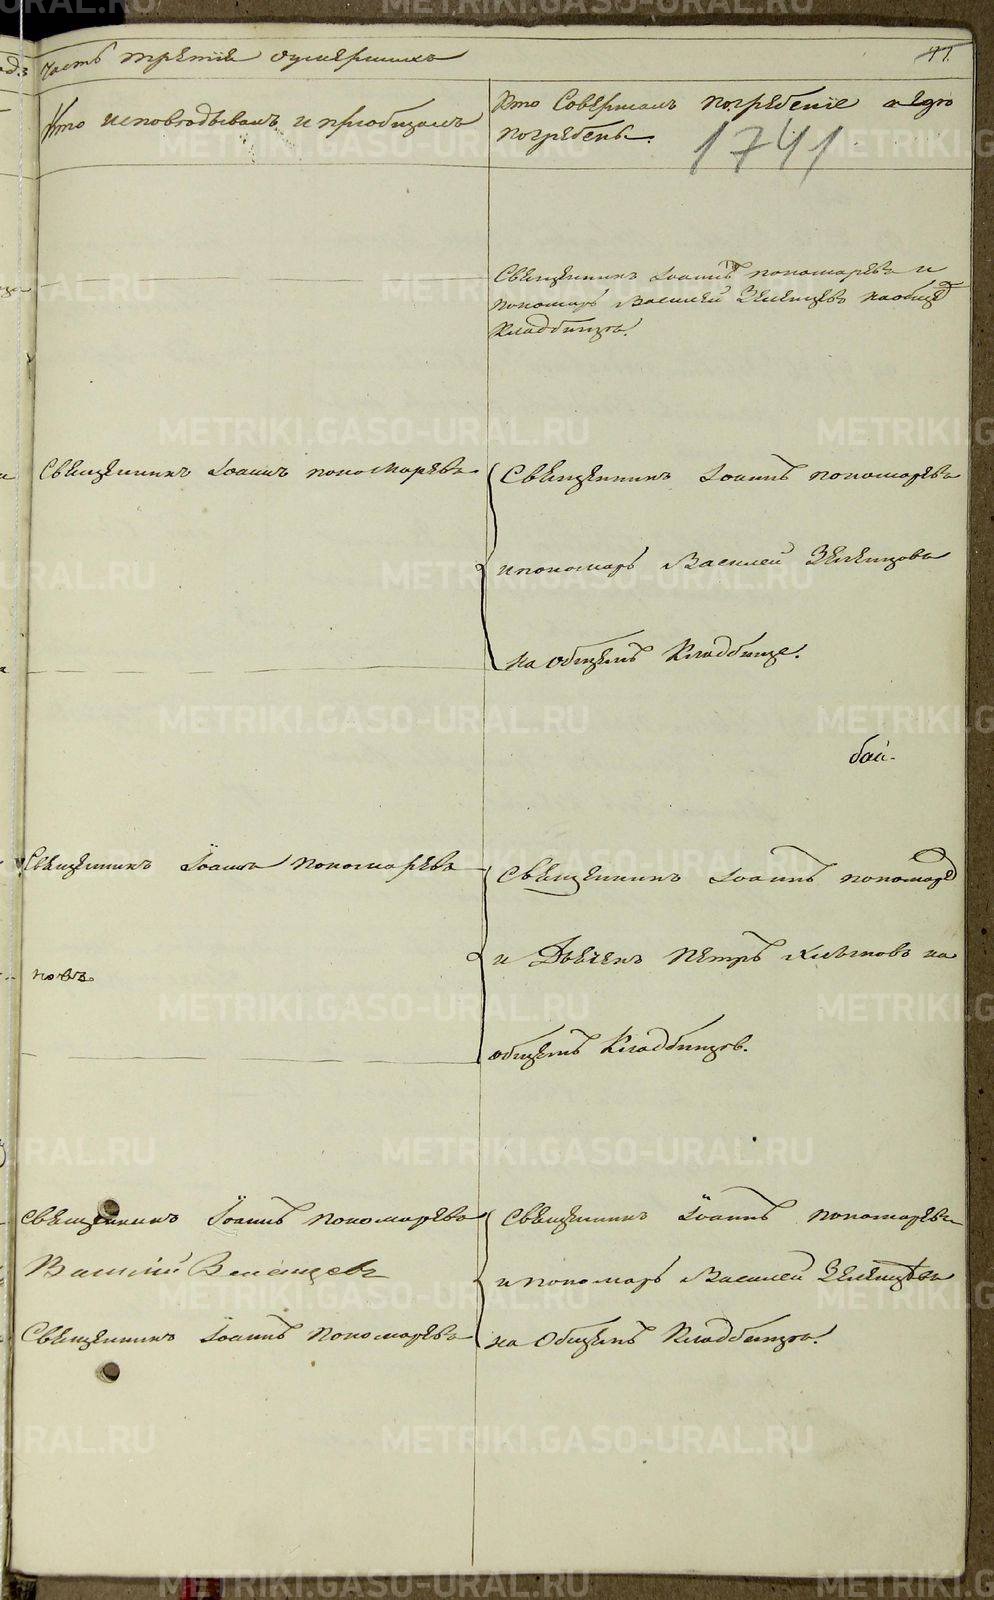 часть третiя оумершихъ
Кто исповѣдывалъ и приобщалъ
Кто Совершалъ погребенiе и гдѣ
погребены.
1741
Священникъ Iоаннъ пономаревъ и
пономарь Василей Зеленцовъ на общемъ
Кладбищѣ.
Священникъ Iоаннъ пономаревъ
Священникъ Iоаннъ пономаревъ
и пономарь Василей Зеленцовъ
на общемъ Кладбище.
бай-
Священникъ Iоаннъ пономаревъ
Священникъ Iоаннъ пономарев
и Дьячекъ Петръ на
новъ
общемъ Кладбищѣ.
Священникъ Iоаннъ пономаревъ
Василiй Зеленцовъ
Священникъ Iоаннъ пономаревъ
Священникъ Iоаннъ пономаревъ
и пономарь Василей Зеленцовъ
на Общемъ Кладбищѣ.
METRIKI.GASO-URAL.RU